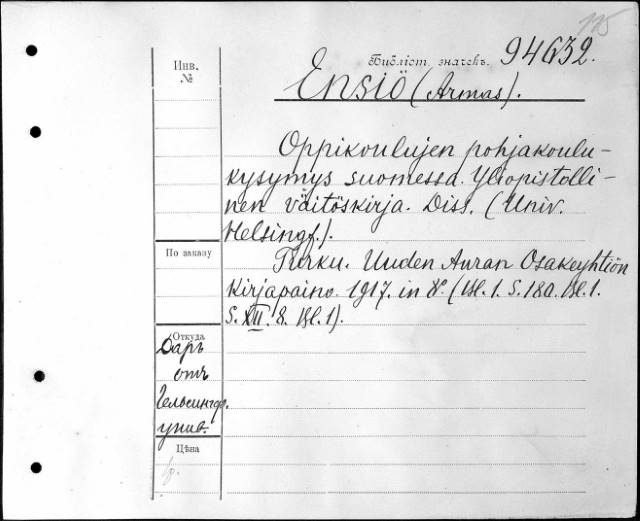 115
Инв.
№
Библіот. значекъ. 94632.
Ensiö (Armas).
Oppikoulujen pohjakoulu-
kysymys suomessa. Yliopistolli-
nen väitöskirja. Diss. (Univ.
Helsingf.).
По заказу
Turku. Uuden Auran Osakeyhtiön
Kirjapaino. 1917. in 8º. (Bl. 1. S. 180. Bl. 1.
S. XII. 8. Bl. 1).
Откуда
Даръ
отъ
Гельсингф.
унив.
Цѣна